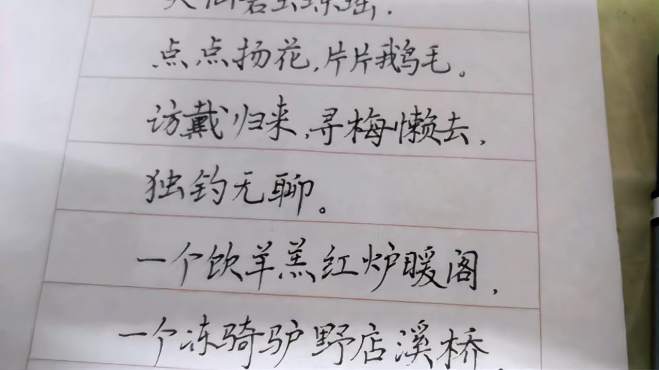 点点扬花，片片鹅毛。
访戴归来，寻梅懒去，
独钓无聊。
一个饮羊羔红炉暖阁，
一个冻骑驴野店溪桥。